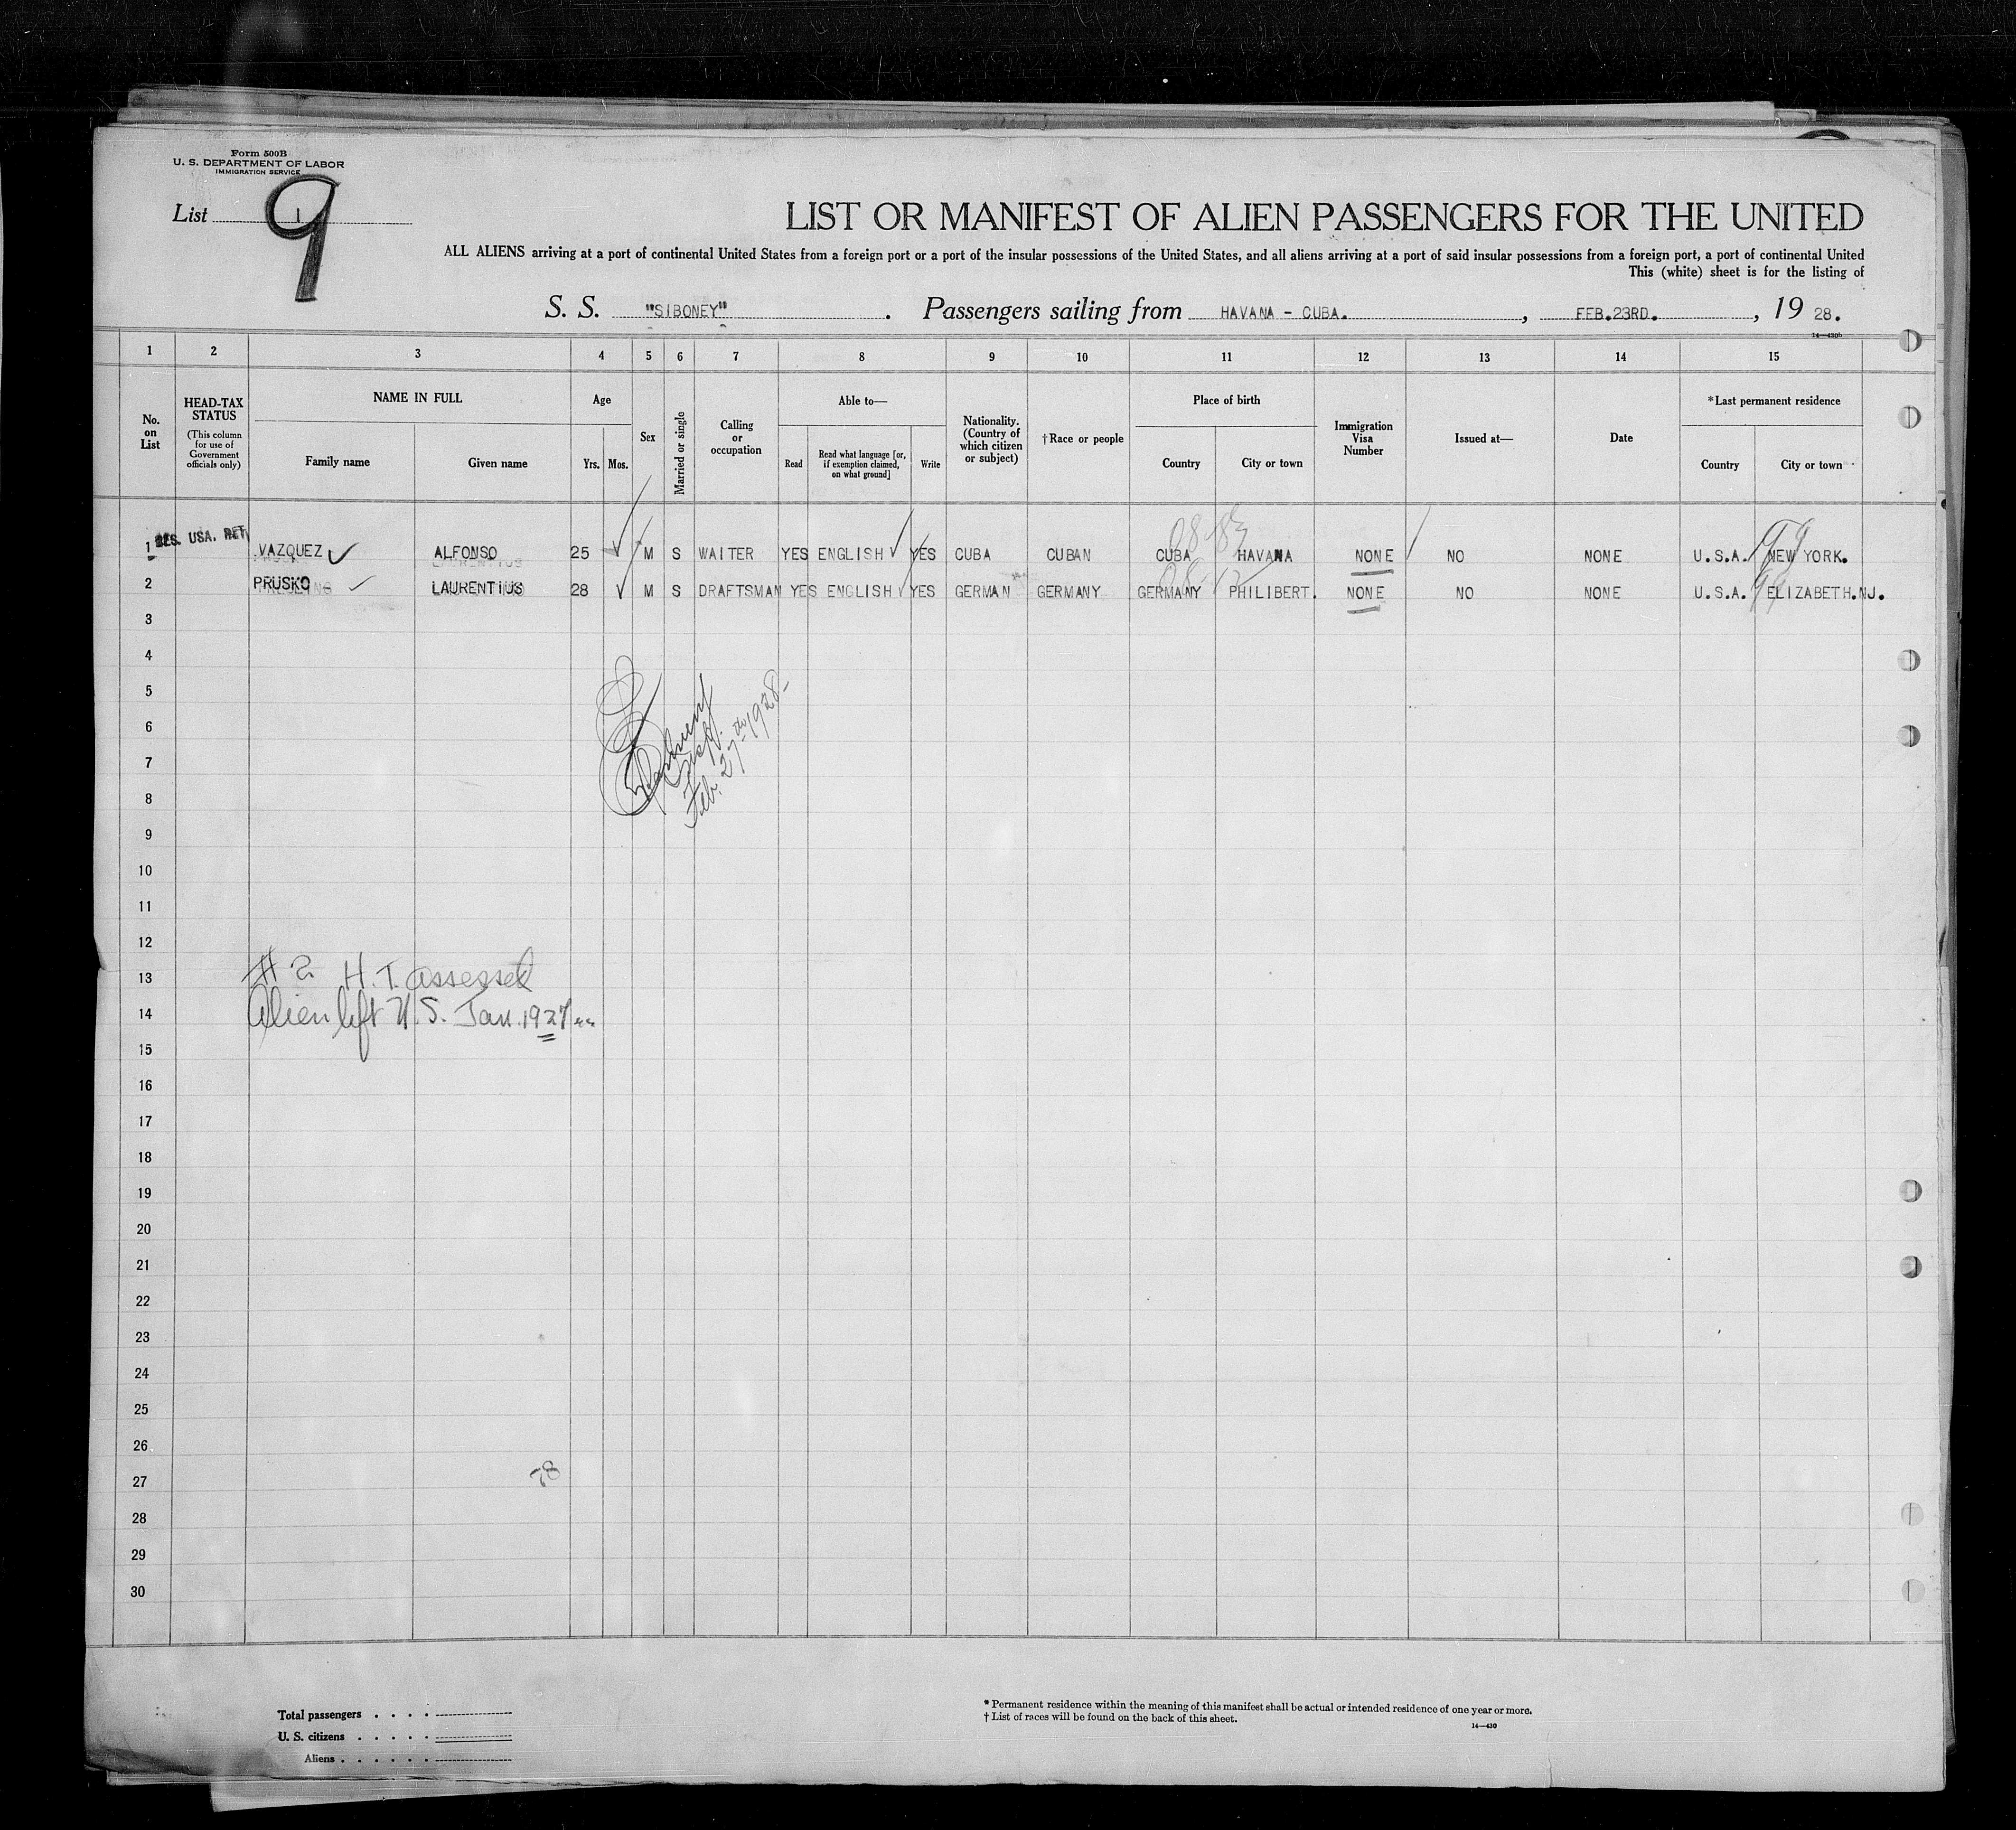 Form 500B
U. S. DEPARTMENT OF LABOR
IMMIGRATION SERVICE
List 1
9
LIST OR MANIFEST OF ALIEN PASSENGERS FOR THE UNITED
ALL ALIENS arriving at a port of continental United States from a foreign port or a port of the insular possessions of the United States, and all aliens arriving at a port of said insular possessions from a foreign port, a port of continental United
This (white) sheet is for the listing of
S. S. "SIBONEY" . Passengers sailing from HAVANA - CUBA. , FEB.23RD. , 19 28.
14—430b
1 2 3 4 5 6 7 8 9 10 11 12 13 14 15
No. on List
HEAD-TAX STATUS
(This column for use of Government officials only)
NAME IN FULL
Family name
Given name
Age
Yrs. Mos.
Sex
Married or single
Calling or occupation
Able to—
Read
Read what language [or, if exemption claimed, on what ground]
Write
Nationality. (Country of which citizen or subject)
†Race or people
Place of birth
Country
City or town
Immigration Visa Number
Issued at—
Date
*Last permanent residence
Country
City or town
1 RES. USA. RET VAZQUEZ ALFONSO 25 M S WAITER YES ENGLISH YES CUBA CUBAN CUBA HAVANA NONE NO NONE U.S.A. NEW YORK.
2 PRUSKO LAURENTIUS 28 M S DRAFTSMAN YES ENGLISH YES GERMAN GERMANY GERMANY PHILIBERT. NONE NO NONE U.S.A. ELIZABETH.NJ.
3
4
5
6
7
8
Feb. 27th 1928-
9
10
11
12
13
# 2 H.T. assessed
14
Alien left U.S. Jan. 1927
15
16
17
18
19
20
21
22
23
24
25
26
27
78
28
29
30
Total passengers . . . .
U. S. citizens . . . . .
Aliens . . . . . .
* Permanent residence within the meaning of this manifest shall be actual or intended residence of one year or more.
† List of races will be found on the back of this sheet.
14—430